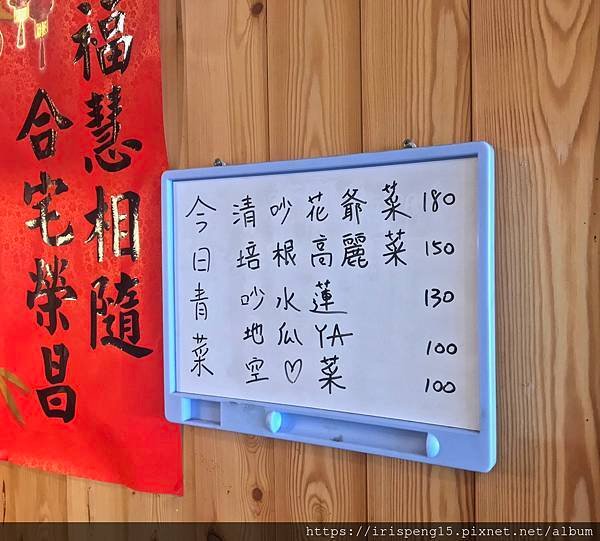 福慧相隨
合宅榮昌
今日青菜
清吵花爺菜 180
培根高麗菜 150
吵水蓮 130
地瓜YA 100
空♡菜 100
https://irispeng15.pixnet.net/album